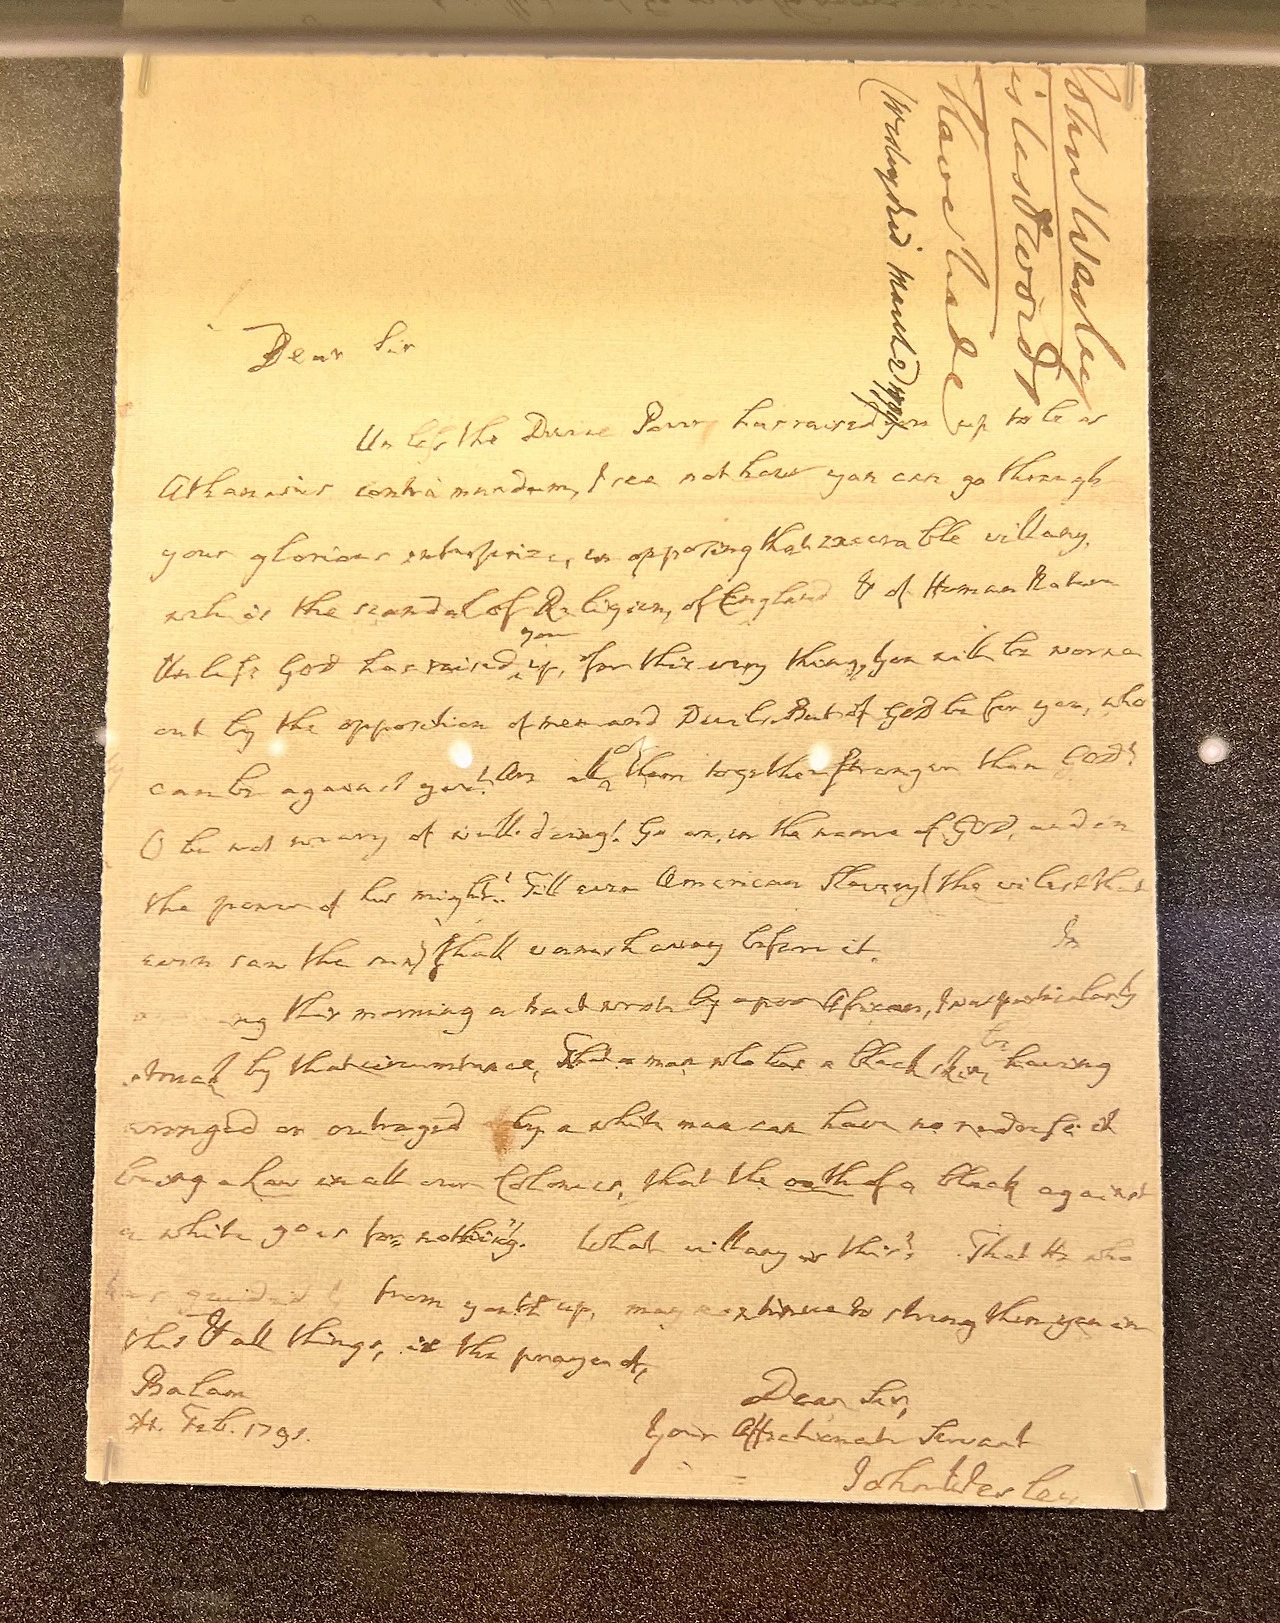 John Wesley
is last words
Slave trade
(Wesley died March 2 1791)
Dear Sir
Unless the Divine Power has raised you up to be as
Athanasius contra mundum, I see not how you can go through
your glorious enterprize, in opposing that execrable villany,
wch is the scandal of Religion, of England & of Human Nature
Unless God has raised you up, for this very thing, you will be worne
out by the opposition of men and Devils. But if GOD be for you, who
can be against you! Are all of them together stronger than GOD?
O be not weary of well-doing! Go on, in the name of GOD, and in
the power of his might! Till even American Slavery (the vilest that
ever saw the sun) shall vanish away before it.
In
ng this morning a tract wrote by a poor African, I was particularly
struck by that circumstance, That a man who has a black skin, being
wronged or outraged by a white man can have no redress: it
being a Law in all our Colonies, that the oath of a black against
a white goes for nothing. What villany is this? That He who
has guided you from youth up, may continue to strengthen you in
this & all things, is the prayer of,
Balam
24. Feb. 1791.
Dear Sir,
Your Affectionate Servant
John Wesley